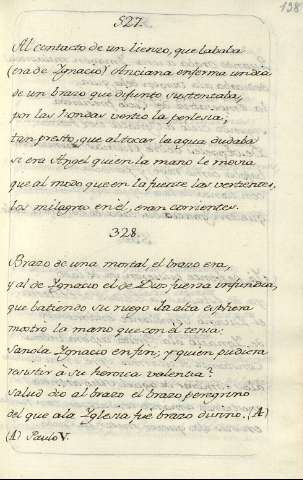 138
327.
Al contacto de un lienzo, que lababa
(era de Ygnacio) Anciana enferma un dia
de un brazo que difunto sustentaba,
por las hondas vertio la perlesia;
tan presto, que al tocar la agua dudaba
si era Angel quien la mano le movia
que al modo que en la fuente las vertientes,
los milagros en el, eran corrientes.
328.
Brazo de una mortal el brazo era,
y al de Ygnacio el de Dios fuerza infundia,
que batiendo su ruego la alta esphera
mostró la mano que con el tenia
Sanola Ygnacio en fin; y quien pudiera
resistir á su heroica valentia?
Salud dio al brazo el brazo peregrino
del que a la Yglesia fue brazo divino. (A)
(A) Paulo V.